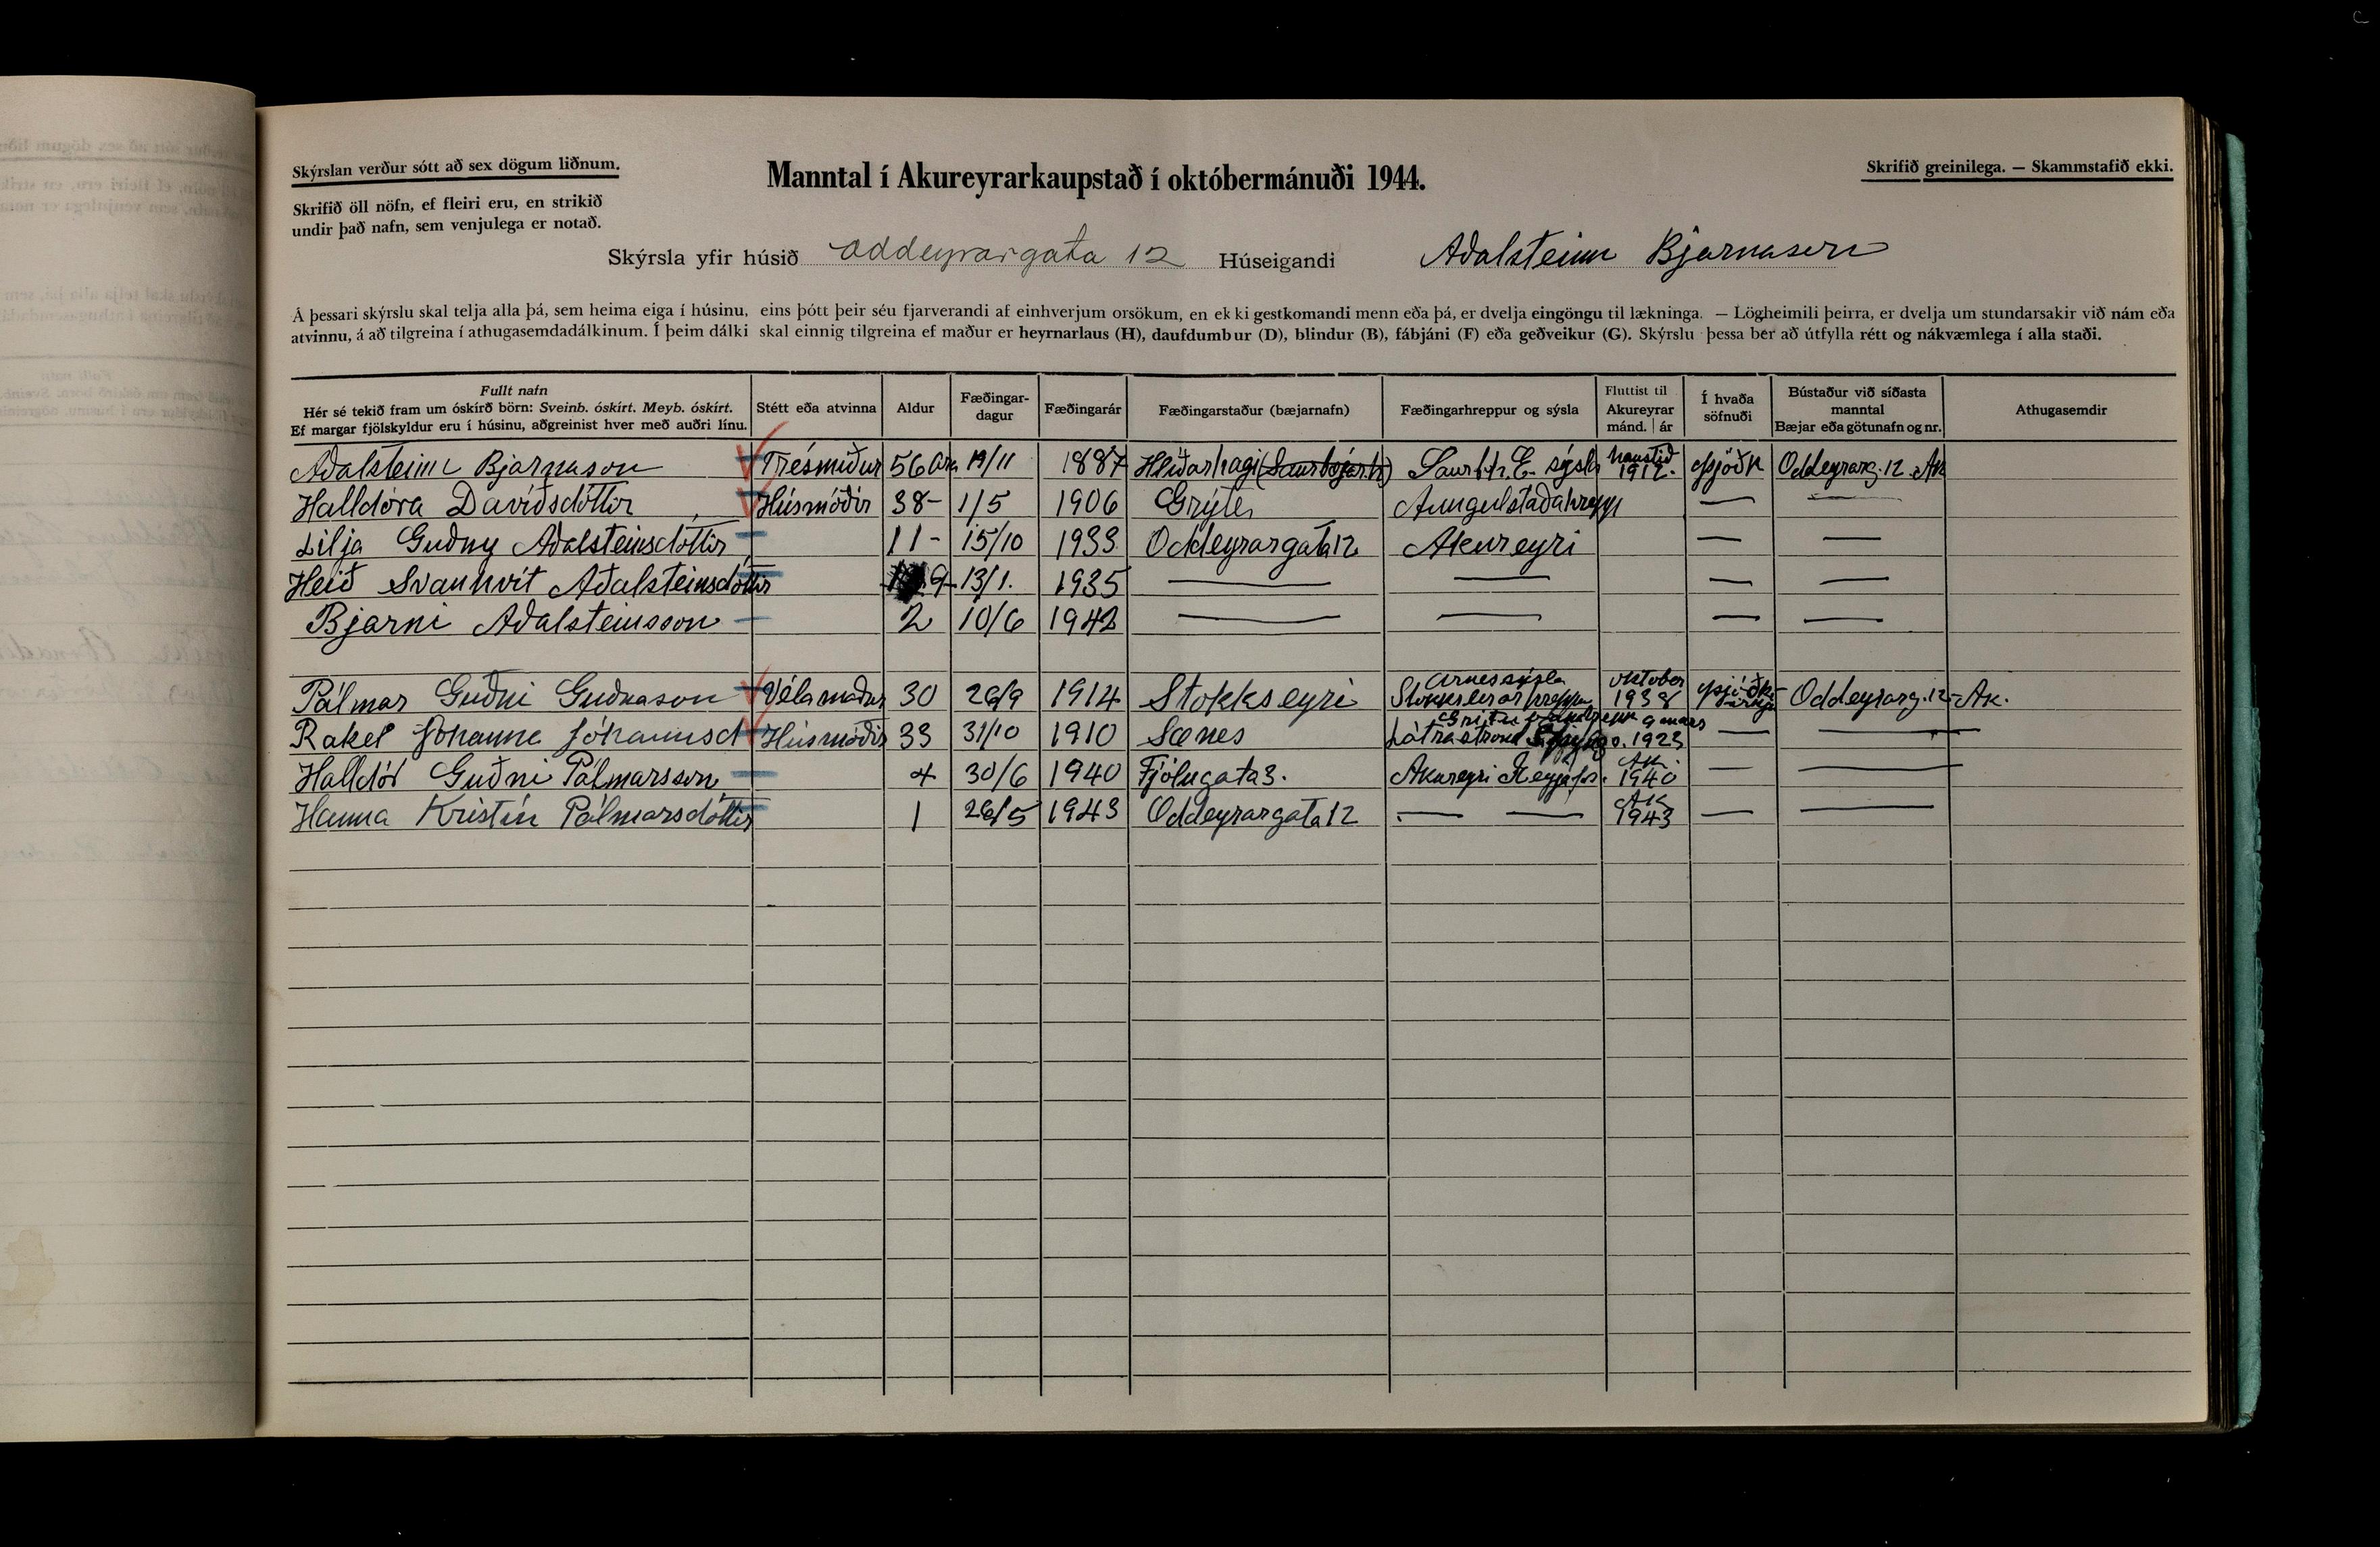 Skýrslan verður sótt að sex dögum liðnum.
Manntal í Akureyrarkaupstað í októbermánuði 1944.
Skrifið greinilega. — Skammstafið ekki.
Skrifið öll nöfn, ef fleiri eru, en strikið
undir það nafn, sem venjulega er notað.
Skýrsla yfir húsið Oddeyrargata 12 Húseigandi Aðalsteinn Bjarnason
Á þessari skýrslu skal telja alla þá, sem heima eiga í húsinu, eins þótt þeir séu fjarverandi af einhverjum orsökum, en ekki gestkomandi menn eða þá, er dvelja eingöngu til lækninga. — Lögheimili þeirra, er dvelja um stundarsakir við nám eða
atvinnu, á að tilgreina í athugasemdadálkinum. Í þeim dálki skal einnig tilgreina ef maður er heyrnarlaus (H), daufdumbur (D), blindur (B), fábjáni (F) eða geðveikur (G). Skýrslu þessa ber að útfylla rétt og nákvæmlega í alla staði.
Fullt nafn
Hér sé tekið fram um óskírð börn: Sveinb. óskírt. Meyb. óskírt.
Ef margar fjölskyldur eru í húsinu, aðgreinist hver með auðri línu.
Stétt eða atvinna
Aldur
Fæðingar-
dagur
Fæðingarár
Fæðingarstaður (bæjarnafn)
Fæðingarhreppur og sýsla
Fluttist til
Akureyrar
mánd. | ár
Í hvaða
söfnuði
Bústaður við síðasta
manntal
Bæjar eða götunafn og nr.
Athugasemdir
Aðalsteinn Bjarnason Trésmiður 56 ára 19/11 1887 Hlíðarhagi (Saurbæjarh) Saurb.h. E. sýsla haustið 1912. þjóðk Oddeyrarg. 12. Ak
Halldóra Davíðsdóttir Húsmóðir 38 - 1/5 1906 Grýta Aungulstaðahrepp — —
Lilja Guðný Aðalsteinsdóttir 11 - 15/10 1933 Oddeyrargata 12 Akureyri — —
Heið Svanhvít Aðalsteinsdóttir 9 - 13/1. 1935 — — — —
Bjarni Aðalsteinsson 2 10/6 1942 — — — —
Pálmar Guðni Guðnason Vélamaður 30 26/9 1914 Stokkseyri Árnessýsla Stokkseyrarhreppur október 1938 Oddeyrarg. 12 - Ak.
Rakel Jóhanna Jóhannsd Húsmóðir 33 31/10 1910 Sænes Látraströnd 1923 — —
Halldór Guðni Pálmarsson 4 30/6 1940 Fjólugata 3. Akureyri Ak. 1940 — —
Hanna Kristín Pálmarsdóttir 1 26/5 1943 Oddeyrargata 12 — — Ak 1943 — —